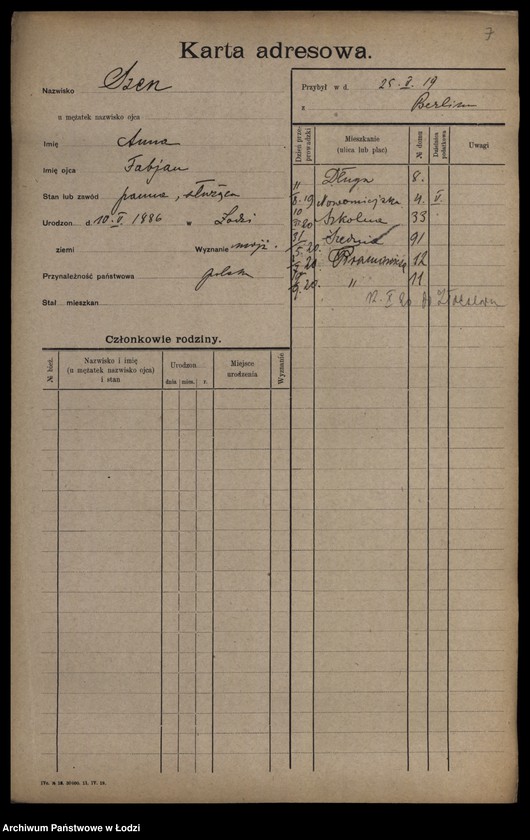 7
Karta adresowa.
Nazwisko Szen
u mężatek nazwisko ojca
Imię Anna
Imię ojca Fabjan
Stan lub zawód panna, służąca
Urodzon d. 10. V. 1886 w Łodzi
ziemi Wyznanie mojż.
Przynależność państwowa polska
Stał mieszkan
Przybył w d. 25. X. 19
z Berlin
Dzień przeprowadzki
Mieszkanie
(ulica lub plac)
№ domu
Dzielnica podatkowa
Uwagi
Długa 8.
11/8. 19 Nowomiejska 4. V.
20 Szkolna 33
31/5. 20. Średnia 91
20. 12
20. " 11
Członkowie rodziny.
№ bież.
Nazwisko i imię
(u mężatek nazwisko ojca)
i stan
Urodzon
dnia mies. r.
Miejsce
urodzenia
Wyznanie
Archiwum Państwowe w Łodzi